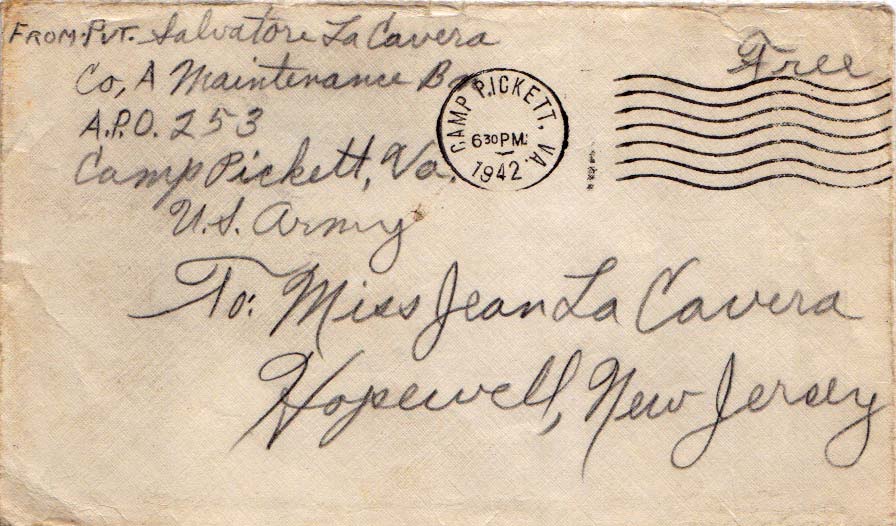 FROM. PVT. Salvatore La Cavera
Free
Co, A Maintenance
A.P.O. 253
Camp Pickett, Va.
U.S. Army
CAMP PICKETT, VA.
6 30 PM
1942
To: Miss Jean La Cavera
Hopewell, New Jersey